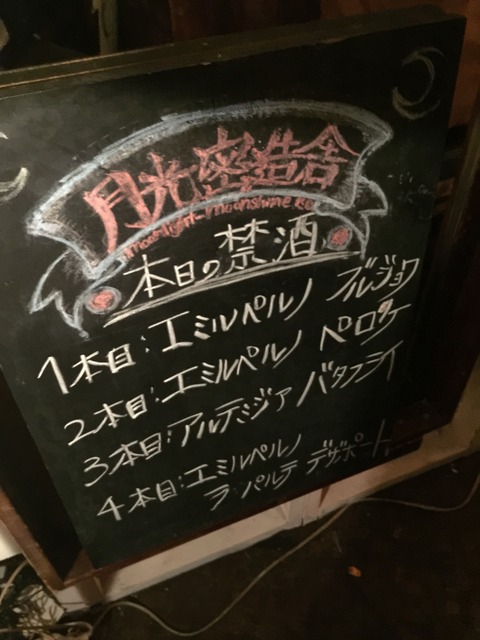 月光密造舎
Moonlight-Moonshine
本日の禁酒
1本目:エミルペルノ ブルジョワ
2本目:エミルペルノ ペロケ
3本目:アルテミジア バタフライ
4本目:エミルペルノ
ラ・パルテ デザポート